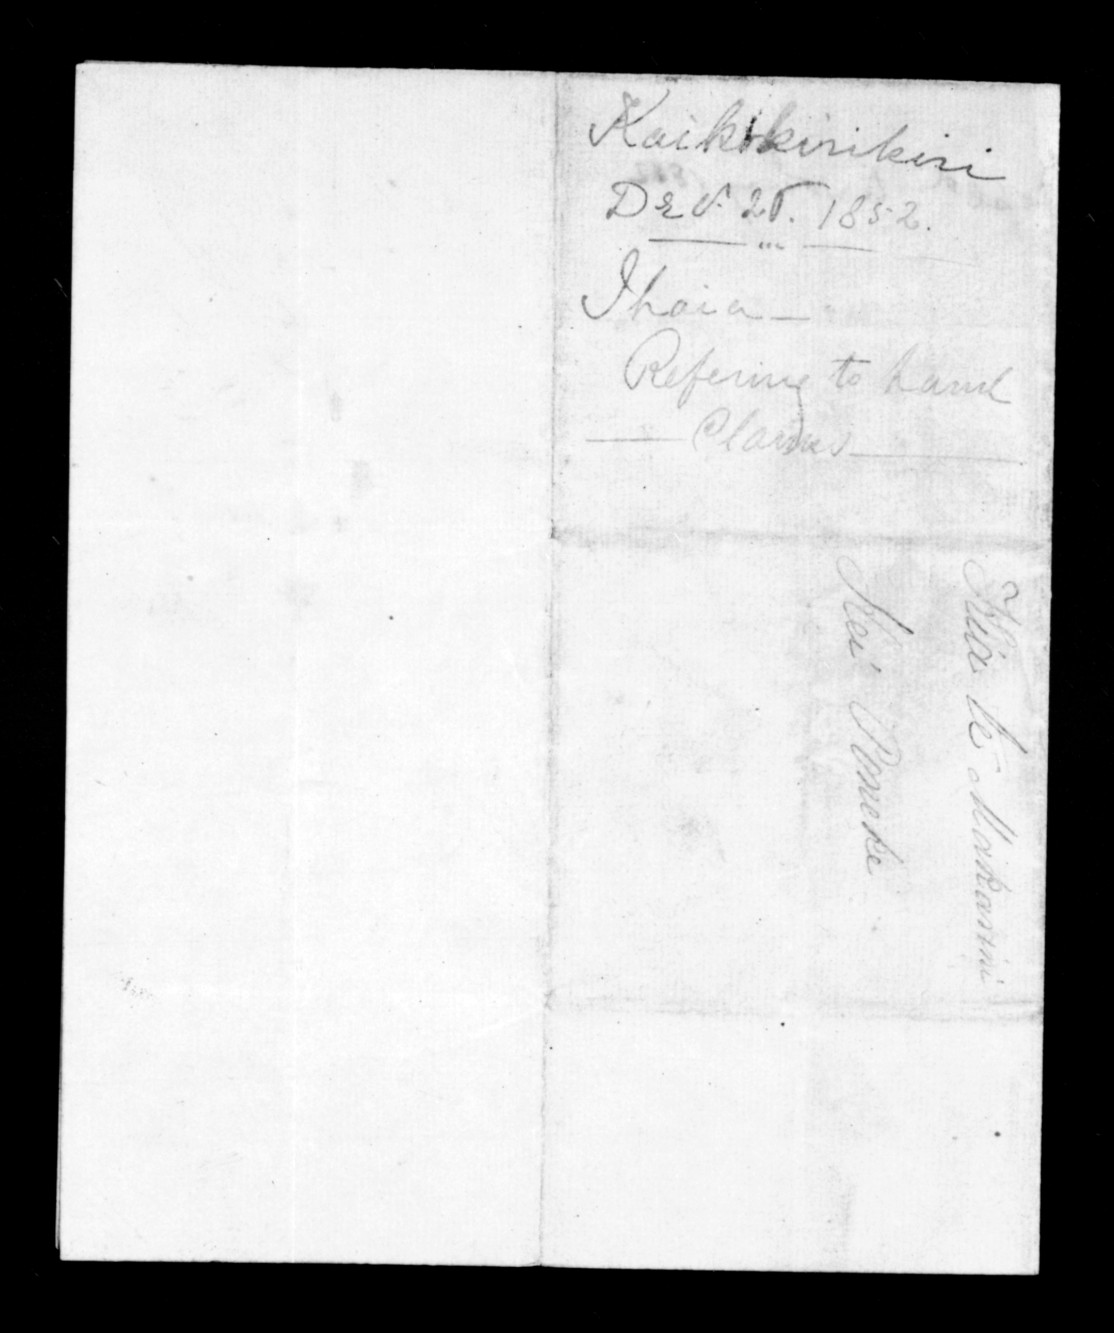 Kaikokirikiri
Dec. 20. 1852.
Ihaia
Refering to Land
Claims
Kia te Makarini
Kei Poneke